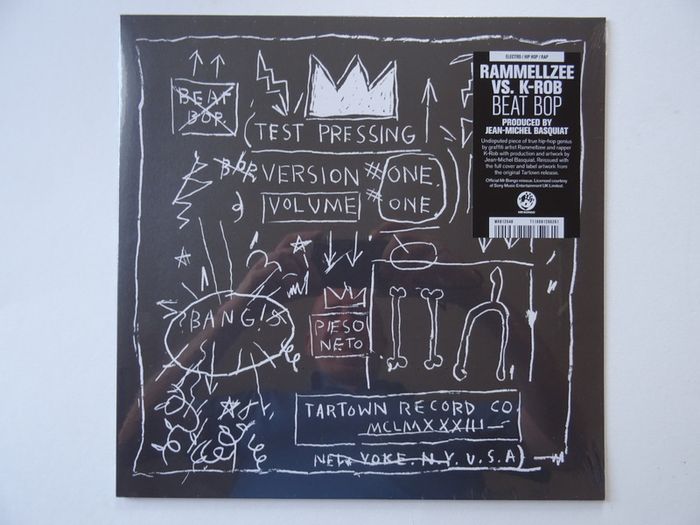 BEAT
BOP
(TEST PRESSING)
BOP VERSION #ONE
VOLUME #ONE
BANG!
PIESO
NETO
TARTOWN RECORD CO.
MCLMXXXIII
NEW YOKE. N.Y. U.S.A
ELECTRO / HIP HOP / RAP
RAMMELLZEE
VS. K-ROB
BEAT BOP
PRODUCED BY
JEAN-MICHEL BASQUIAT
Undisputed piece of true hip-hop genius
by graffiti artist Rammellzee and rapper
K-Rob with production and artwork by
Jean-Michel Basquiat. Reissued with
the full cover and label artwork from
the original Tartown release.
Official Mr Bongo reissue. Licensed courtesy
of Sony Music Entertainment UK Limited.
MR BONGO